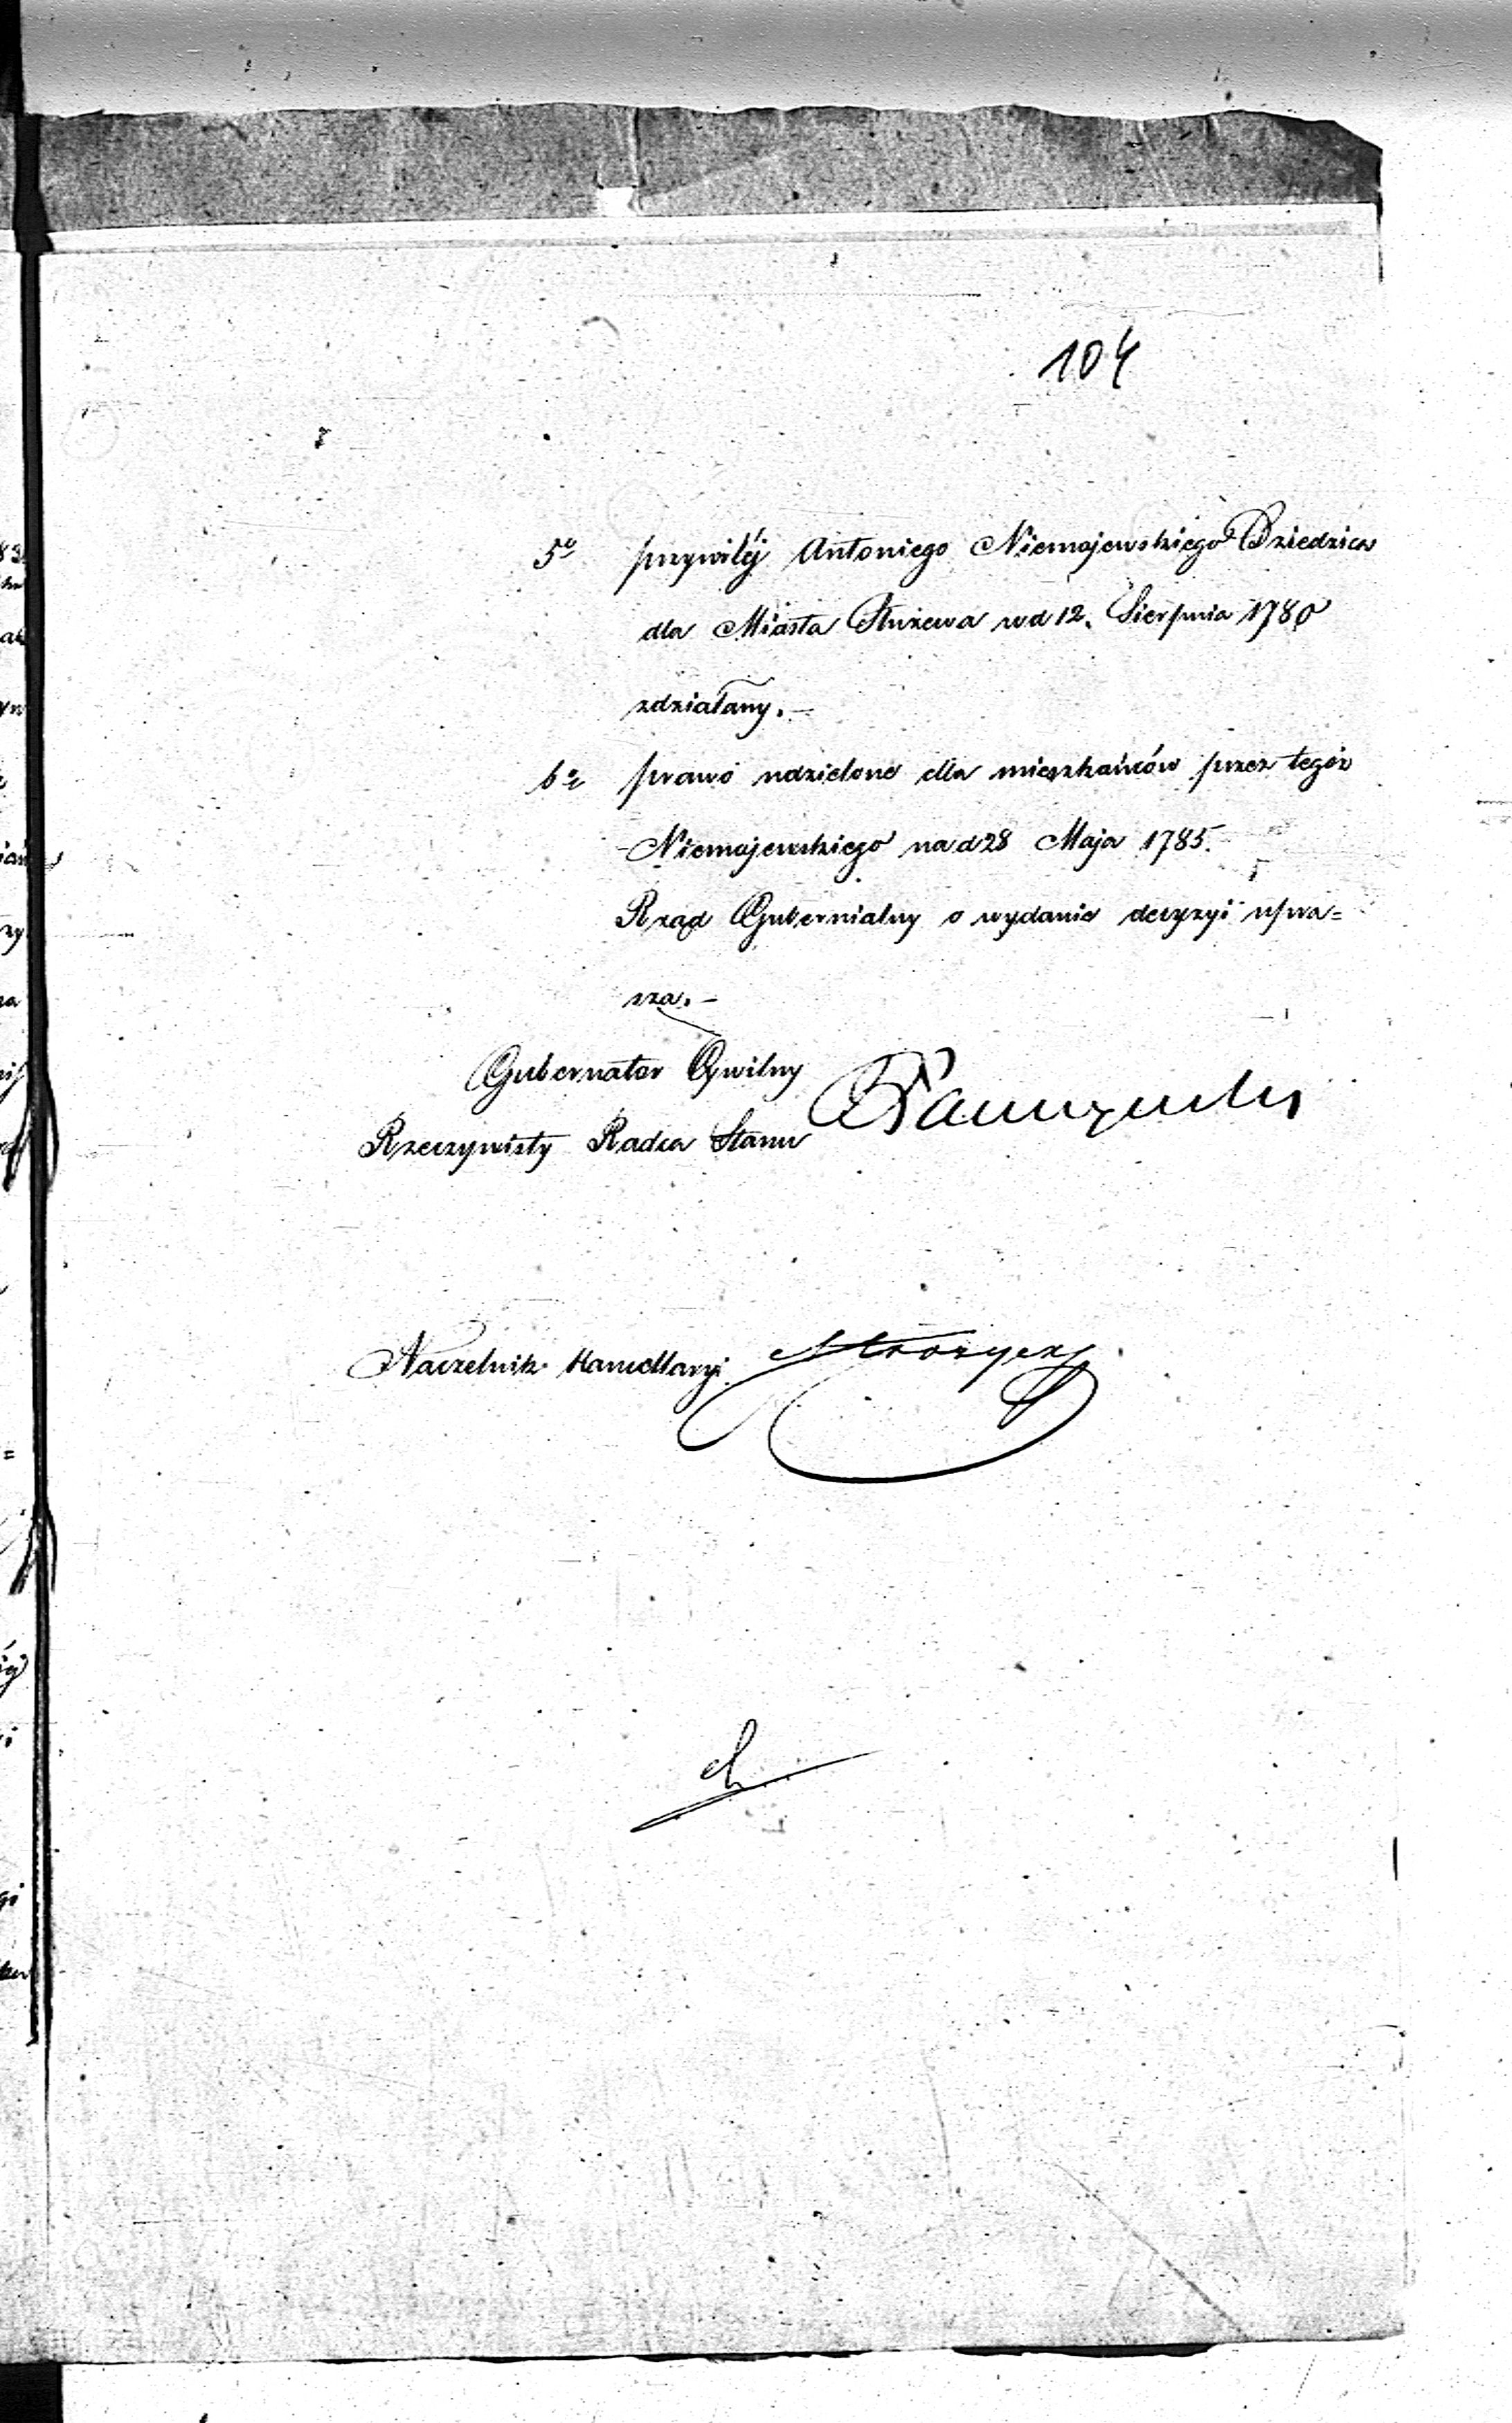 104
5º przywilej Antoniego Niemojewskiego Dziedzica
dla Miasta Służewa w d 12. Sierpnia 1780
zdziałany. —
6º prawo udzielone dla mieszkańców przez tegoż
Niemojewskiego na d 28 Maja 1785.
Rząd Gubernialny o wydanie decyzyi upra=
sza. —
Gubernator Cywilny
Rzeczywisty Radca Stanu
Naczelnik Kancellaryi